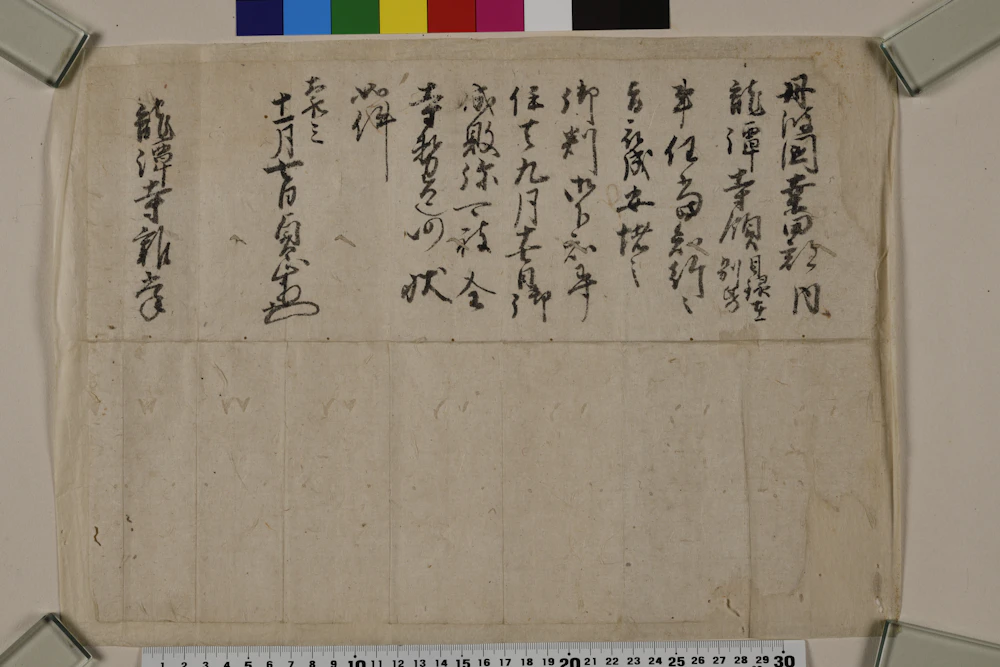 丹波国桑田郡内
龍潭寺領目録在別帋
事任当知行之
旨被成安堵之
御判御下知畢
任去九月日御
成敗弥可被全
寺務之由仍状
如件
大永三
十一月日貞
龍潭寺雑掌
1 2 3 4 5 6 7 8 9 10 11 12 13 14 15 16 17 18 19 20 21 22 23 24 25 26 27 28 29 30